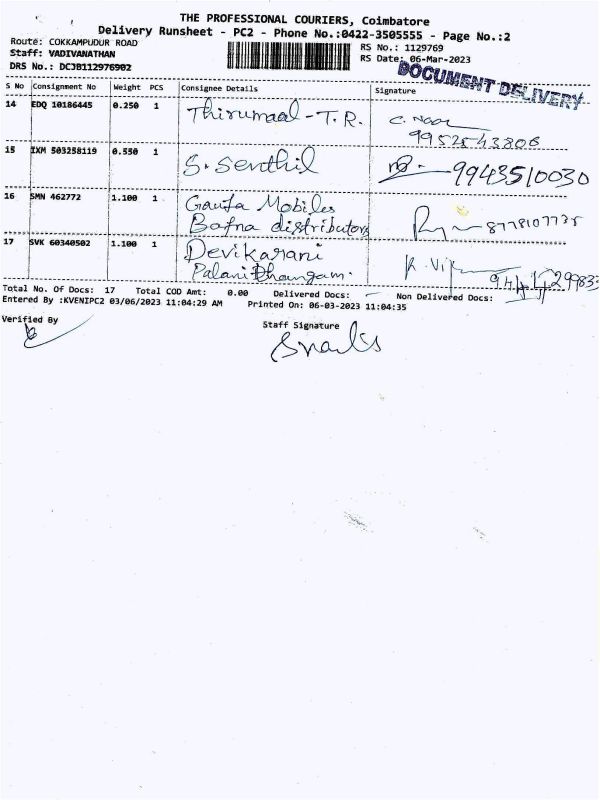 THE PROFESSIONAL COURIERS, Coimbatore
Delivery Runsheet - PC2 - Phone No.:0422-3505555 - Page No.:2
Route: COKKAMPUDUR ROAD
RS No.: 1129769
Staff: VADIVANATHAN
RS Date: 06-Mar-2023
DRS No.: DCJB112976902
DOCUMENT DELIVERY
S No Consignment No Weight PCS Consignee Details Signature
14 EDQ 10186445 0.250 1 Thirumaal - T.R. C. Noor
9952543806
15 IXM 503258119 0.550 1 S. Senthil 9943510030
16 SMN 462772 1.100 1 Gaufa Mobiles
Bafna distributors 8778107735
17 SVK 60340502 1.100 1 Devikarani
Palani Dhangam.
Total No. Of Docs: 17 Total COD Amt: 0.00 Delivered Docs: Non Delivered Docs:
Entered By :KVENIPC2 03/06/2023 11:04:29 AM Printed On: 06-03-2023 11:04:35
Verified By
Staff Signature